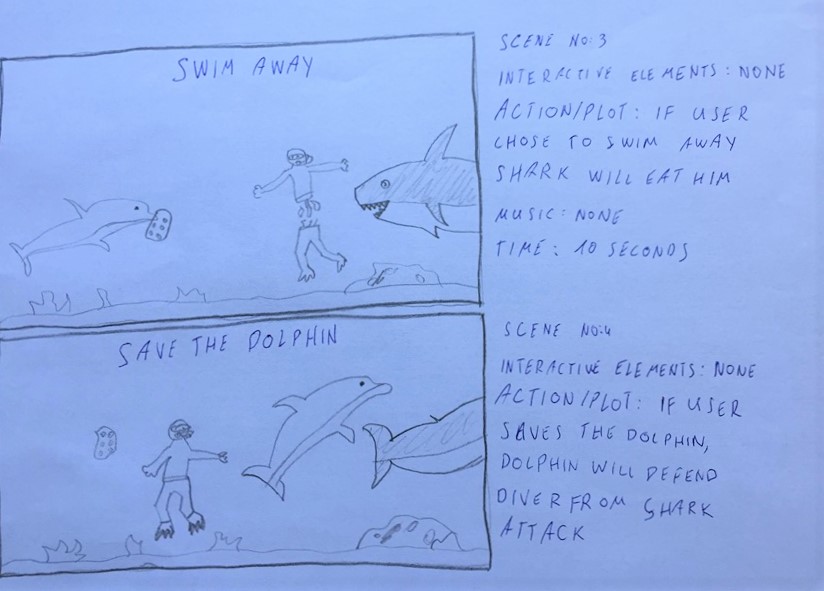 SWIM AWAY
SCENE NO: 3
INTERACTIVE ELEMENTS: NONE
ACTION/PLOT: IF USER
CHOSE TO SWIM AWAY
SHARK WILL EAT HIM
MUSIC: NONE
TIME: 10 SECONDS
SAVE THE DOLPHIN
SCENE NO:4
INTERACTIVE ELEMENTS: NONE
ACTION/PLOT: IF USER
SAVES THE DOLPHIN,
DOLPHIN WILL DEFEND
DIVER FROM SHARK
ATTACK